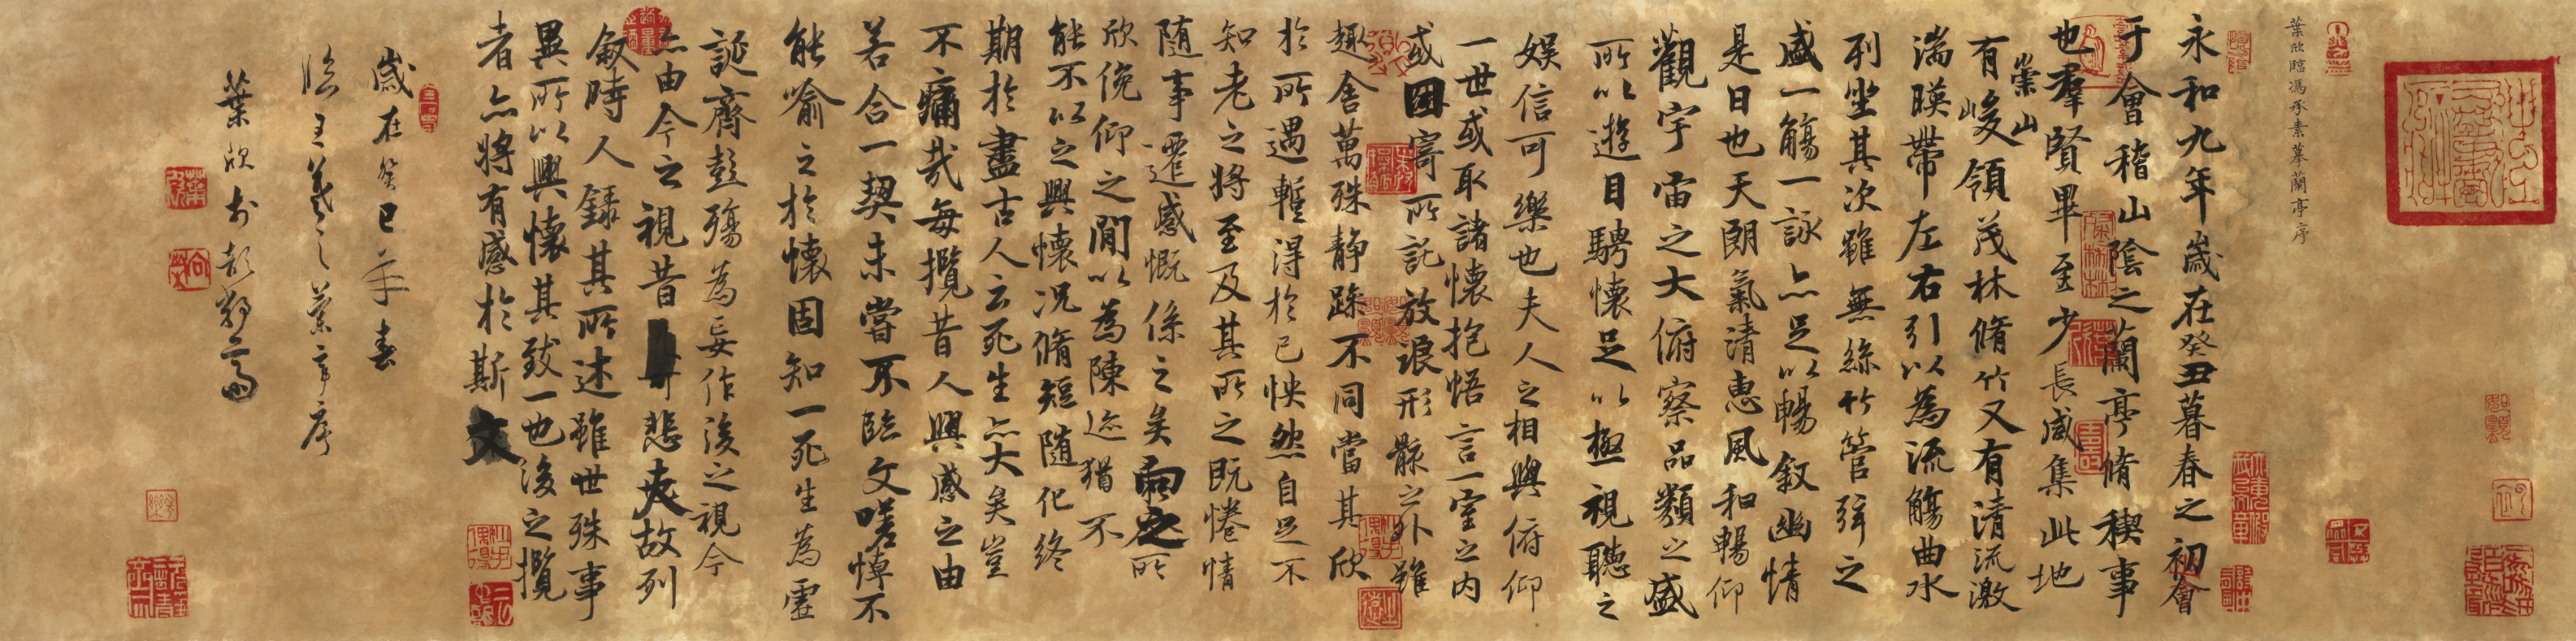 葉欣臨馮承素摹蘭亭序
永和九年歲在癸丑暮春之初會
于會稽山陰之蘭亭脩稧事
也羣賢畢至少長咸集此地
有崇山峻領茂林脩竹又有清流激
湍暎帶左右引以為流觴曲水
列坐其次雖無絲竹管弦之
盛一觴一詠亦足以暢叙幽情
是日也天朗氣清惠風和暢仰
觀宇宙之大俯察品類之盛
所以遊目騁懷足以極視聽之
娛信可樂也夫人之相與俯仰
一世或取諸懷抱悟言一室之内
或因寄所託放浪形骸之外雖
趣舍萬殊静躁不同當其欣
於所遇暫得於己怏然自足不
知老之將至及其所之既惓情
隨事遷感慨係之矣向之所
欣俛仰之閒以為陳迹猶不
能不以之興懷況脩短隨化終
期於盡古人云死生亦大矣豈
不痛哉每攬昔人興感之由
若合一契未嘗不臨文嗟悼不
能喻之於懷固知一死生為虛
誕齊彭殤為妄作後之視今
亦由今之視昔悲夫故列
敘時人錄其所述雖世殊事
異所以興懷其致一也後之攬
者亦將有感於斯文
歲在癸巳年春
臨王羲之蘭亭序
葉欣